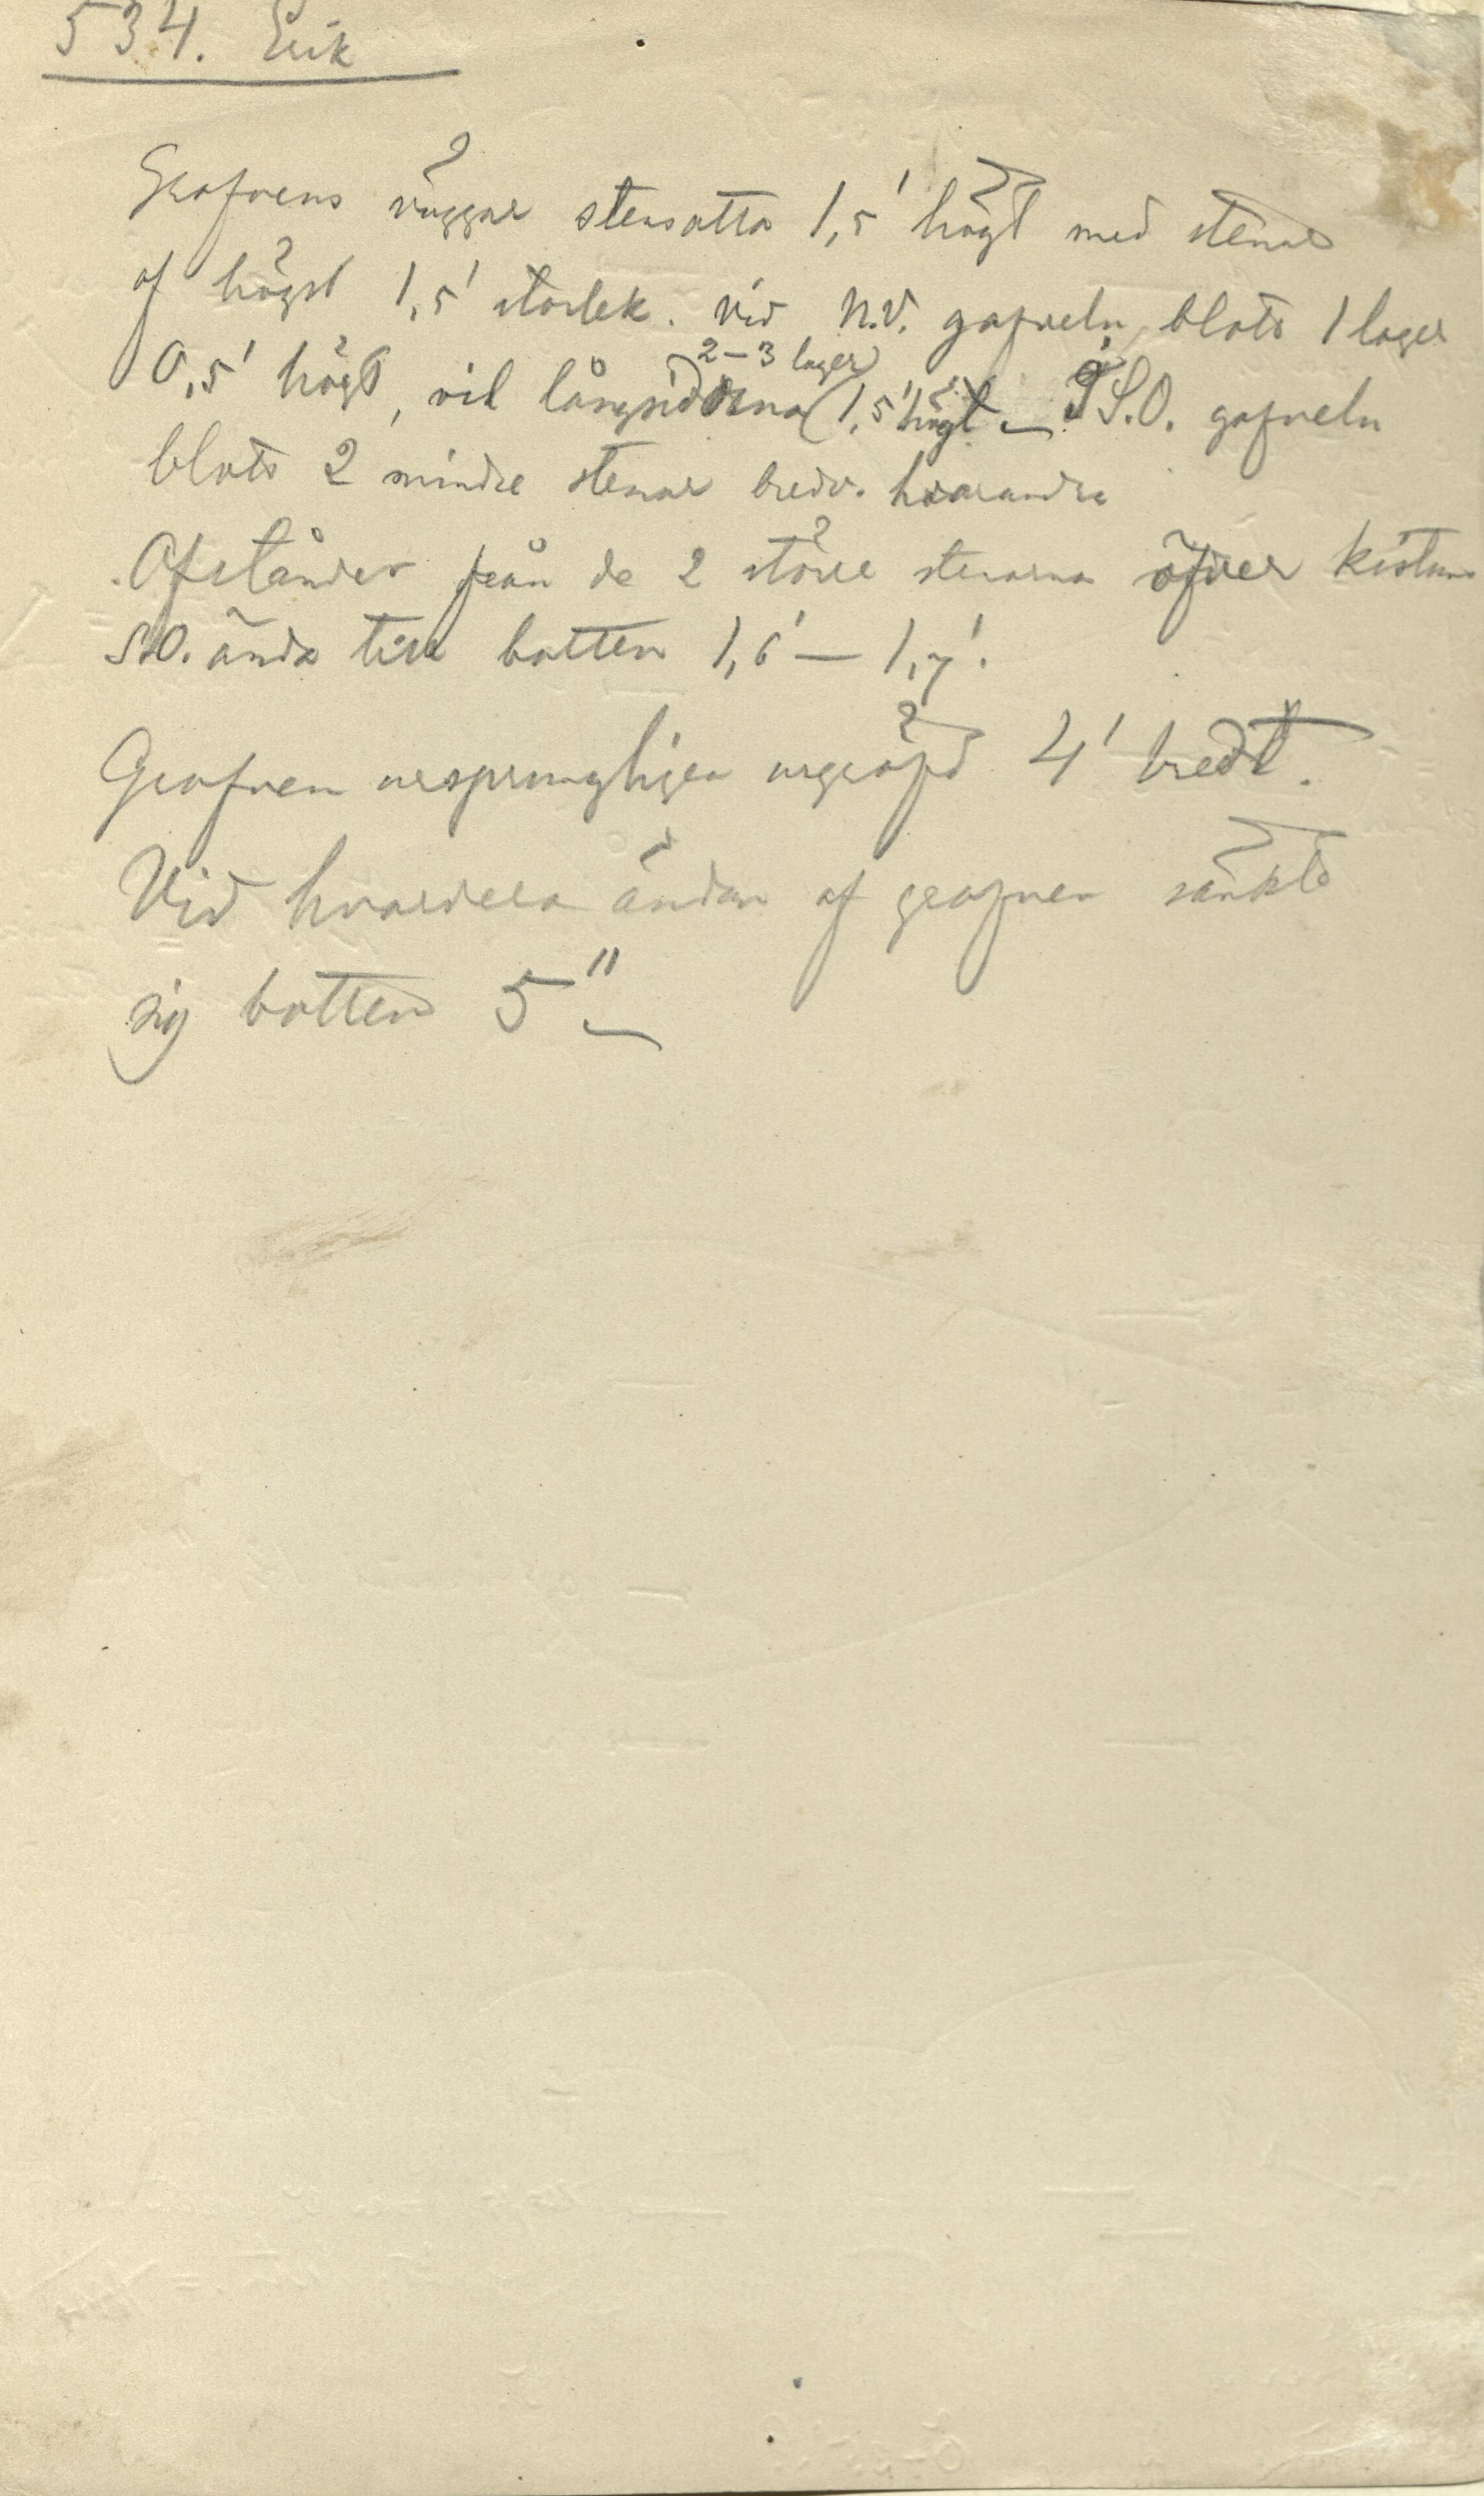 534. Erik
Grafvens väggar stensatta 1,5' högt med stenar
af högst 1,5' storlek. Vid N.V. gafveln blott 1 lager
0,5' högt, vid långsidorna (2–3 lager) 1,5' högt – I S.O. gafveln
blott 2 mindre stenar bredv. hvarandra
Afståndet från de 2 större stenarna öfver kistans
S.O. ända till botten 1,6' – 1,7'.
Grafven ursprungligen urgräfd 4' bredt.
Vid hvardera ändan af grafven sänkte
sig botten 5" –